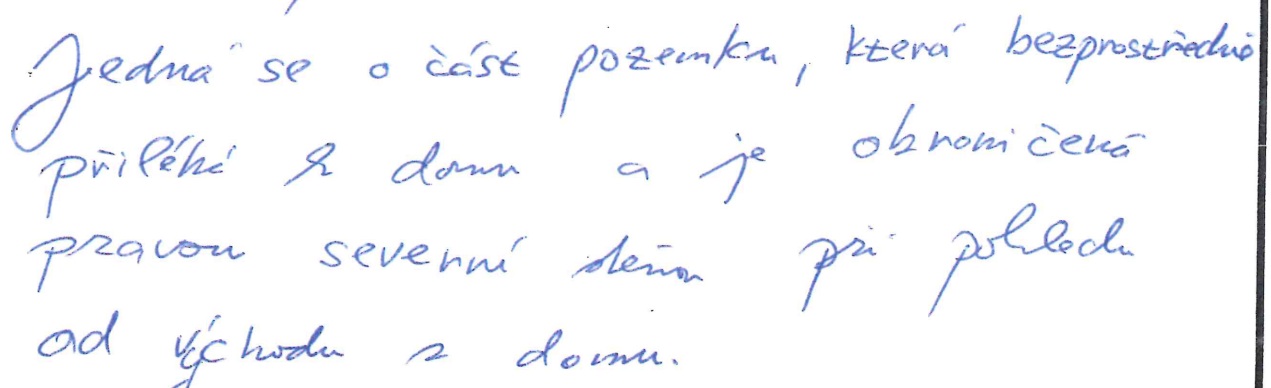 Jedná se o část pozemku, která bezprostředně
přiléhá k domu a je ohraničená
pravou severní stěnou při pohledu
od východu z domu.